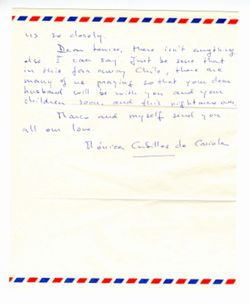 us so closely.
Dear Louise, there isn't anything
else I can say. Just be sure that
in this far away Chile, there are
many of us praying so that your dear
husband will be with you and your
children soon, and this nightmare over.
Marco and myself send you
all our love
Mónica Cubillos de Cariola